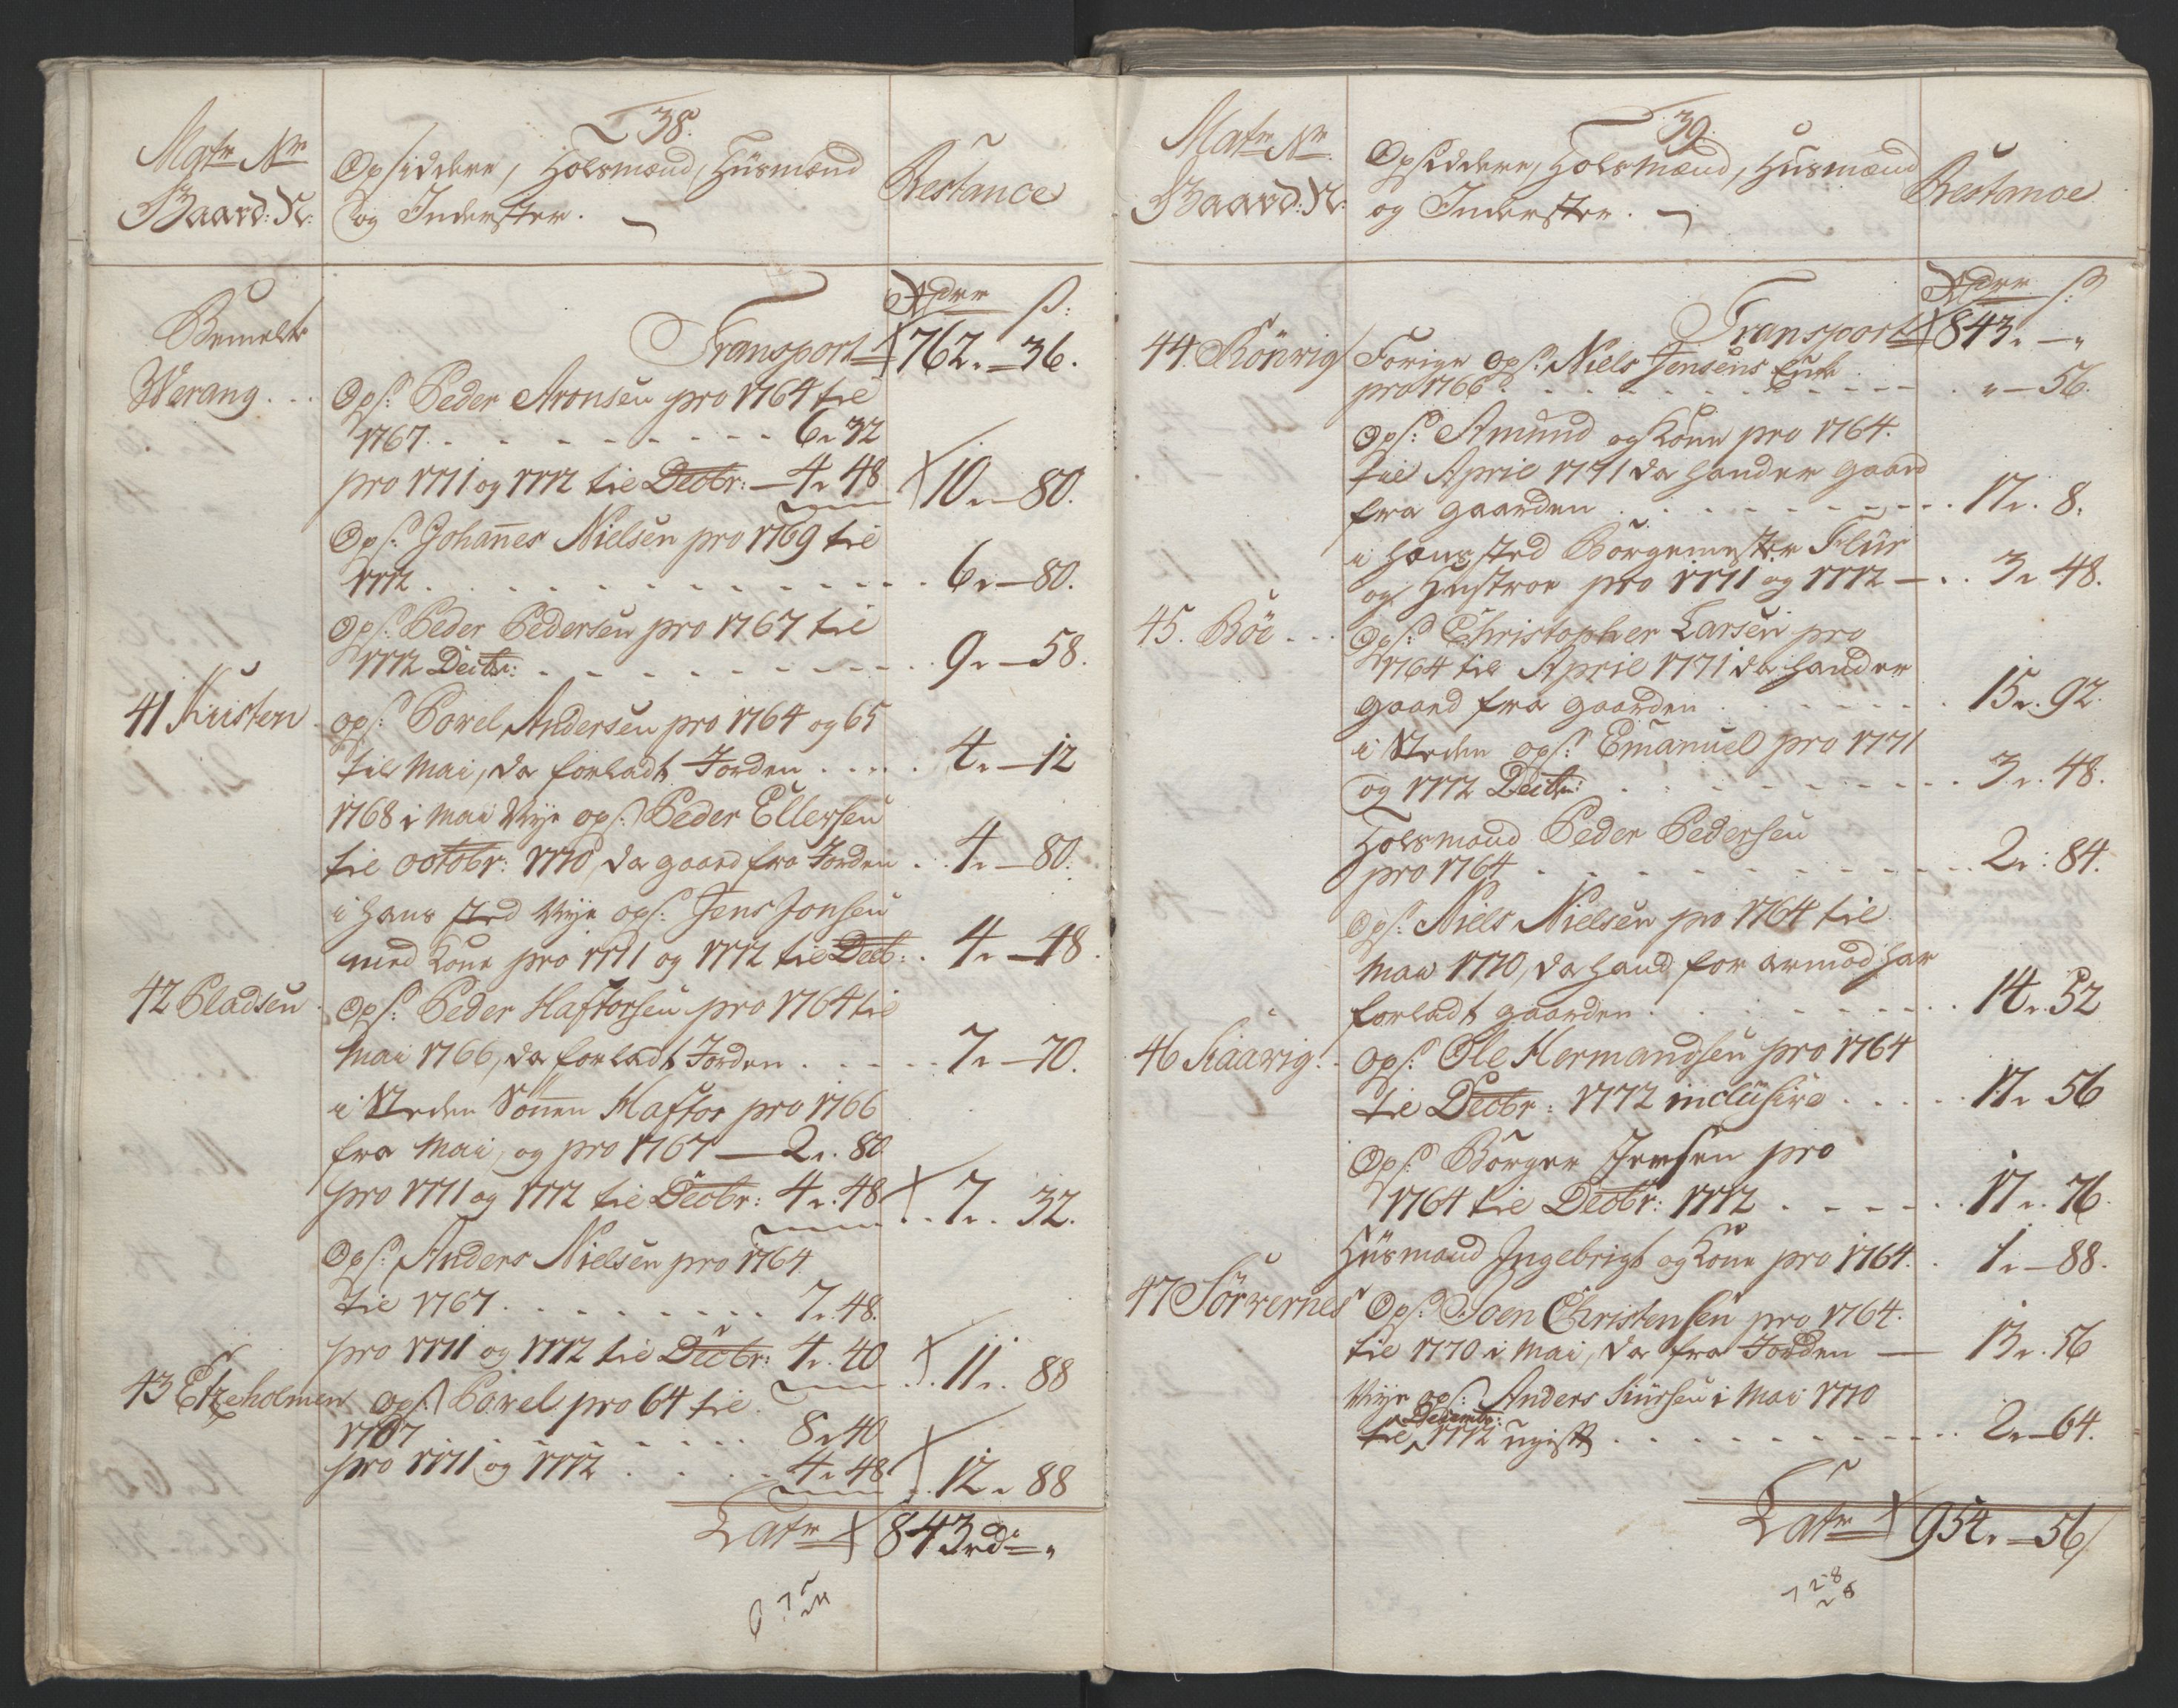 38.
Matr Nr
Gaard: N:
Opsiddere, Holsmænd, Huusmænd
og Inderster.
Restance
Rdr ß:
Bemelte
Werang
Transport 762. - 36.
Ops: Peder Aronsen pro 1764 til
1767 6. 32
pro 1771 og 1772 til Decbr: - 4. 48 10. - 80.
Ops: Johannes Nielsen pro 1769 til
1772 6. - 80.
Ops: Peder Pedersen pro 1767 til
1772 Decbr: 9. - 58.
41 Kuisten Ops: Povel Andersen pro 1764 og 65
til Mai, da forladt Jorden 4. - 12
1768 i Mai Nye ops: Peder Ellersen
til octobr: 1770, da gaaed fra Jorden 4. - 80.
i hans sted Nye ops: Jens Jonsen
med Kone pro 1771 og 1772 til Decb: 4. - 48.
42 Pladsen Ops: Peder Haftorsen pro 1764 til
Mai 1766, da forladt Jorden 7. - 70.
i Steden Sönnen Haftor pro 1766
fra Mai, og pro 1767 - 2. 80
pro 1771 og 1772 til Decbr: 4. 48 7. 32.
Ops: Anders Nielsen pro 1764
til 1767 7. 48.
pro 1771 og 1772 til Decbr: 4. 40 11. 88
43 Etzeholmen ops: Povel pro 64 til
1767 8. 40
pro 1771 og 1772 4. 48 12. 88
Latr 843rd -
39.
Matr Nr
Gaard: N:
Opsiddere, Holsmænd, Huusmænd
og Inderster.
Restance
Rdr ß:
Transport 843. -
44. Rönvig Forige Ops: Niels Jensens Enke
pro 1766 " - 56.
Ops: Amund og Kone pro 1764
til April 1771 da hand er gaaed
fra gaarden 17. 8.
i hans sted Borgemester Flur
og Hustroe pro 1771 og 1772 - 3. 48.
45. Böe Ops: Christopher Larsen pro
1764 til April 1771 da hand er
gaaed fra gaarden 15. 92.
i Steden ops: Emanuel pro 1771
og 1772 Decbr: 3. 48.
Holsmand Peder Pedersen
pro 1764 2. 84.
Ops: Niels Nielsen pro 1764 til
Mai 1770, da hand for armod har
forladt gaarden 14. 52
46 Kaavig Ops: Ole Hermandsen pro 1764
til Decbr: 1772 inclusive 17. 56
Ops: Börger Jensen pro
1764 til Decbr: 1772 17. 76.
Huusmand Ingebrigt og Kone pro 1764. 1. - 88.
47 Sörvernes Ops: Joen Christensen pro 1764.
til 1770 i Mai, da fra Jorden - 13. 56
Nye ops: Anders Siursen i Mai 1770
Decembr:
til 1772 ugift 2. - 64.
Latr 954. - 56